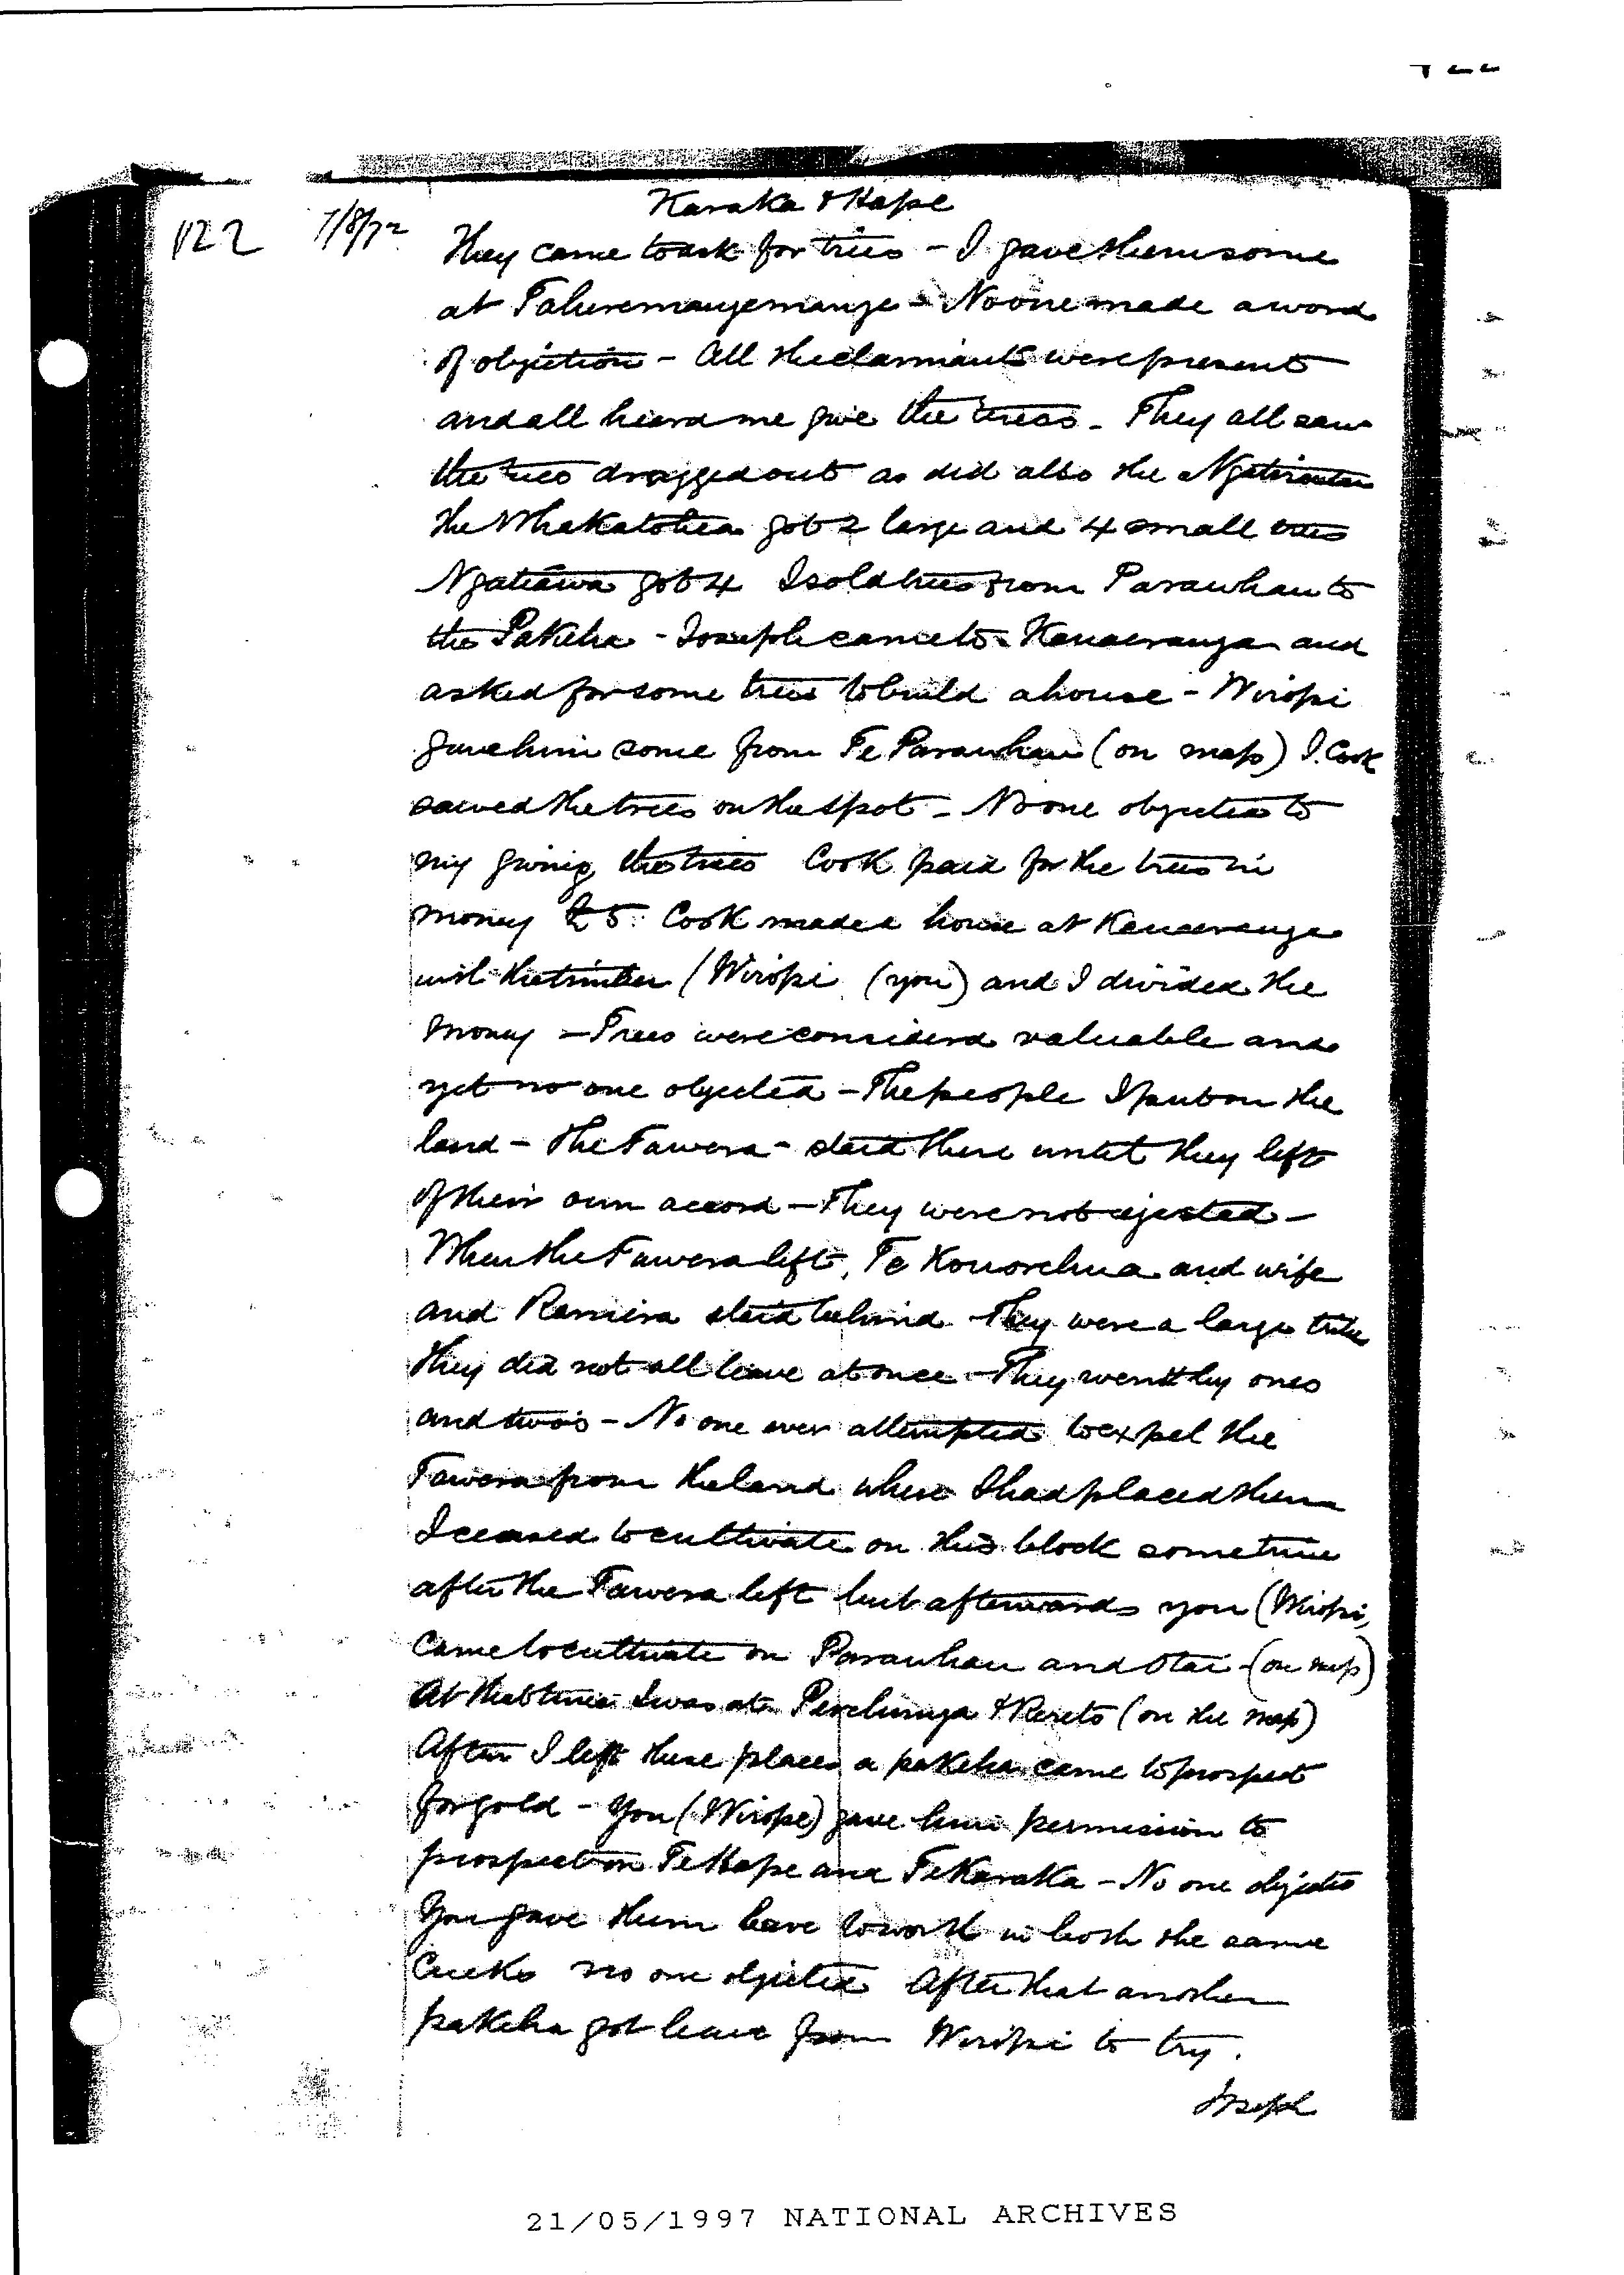 122 7/8/72
Karaka & Hape
They came to ask for trees - I gave them some
at - No one made a word
of objection - All the claimants were present
and all heard me give the trees - They all saw
the trees dragged out as did also the
the Whakatohea got 2 large and 4 small trees
Ngatiawa got 4 I sold trees from Parawhau to
the Pakeha - Joseph came to Kauaeranga and
asked for some trees to build a house - Wiropi
gave him some from Te Parawhau (on map) J. Cook
sawed the trees on the spot - No one objected to
my giving the trees Cook paid for the trees in
money £5. Cook made a house at Kauaeranga
with the timber (Wiropi (you) and I divided the
money - Trees were considered valuable and
yet no one objected - The people I put on the
land - The Tawera - staid there until they left
of their own accord - They were not ejected -
When the Tawera left, Te and wife
and Ramiera staid behind They were a large tribe
They did not all leave at once - They went by ones
and twos - No one ever attempted to expel the
Tawera from the land where I had placed them
I ceased to cultivate on this block sometime
after the Tawera left but afterwards you (Wiropi,
Came to cultivate on Parawhau and Otai - (on map)
At that time I was at & Rereto (on the map)
After I left these places a pakeha came to prospect
for gold - You (Wiropi) gave him permission to
prospect on Te Hape and Te Karaka - No one objected
You gave them leave to work in both the same
Creeks no one objected After that another
pakeha got leave from Wiropi to try.
Joseph
21/05/1997 NATIONAL ARCHIVES